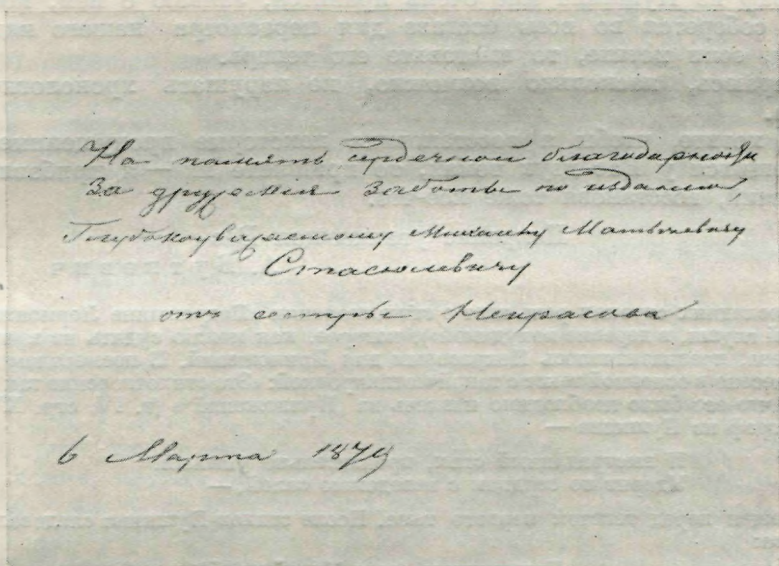 На память сердечной благодарности
За дружескія заботы по изданію,
Глубокоуважаемому Михаилу Матвѣевичу
Стасюлевичу
отъ сестры Некрасова
6 Марта 1879